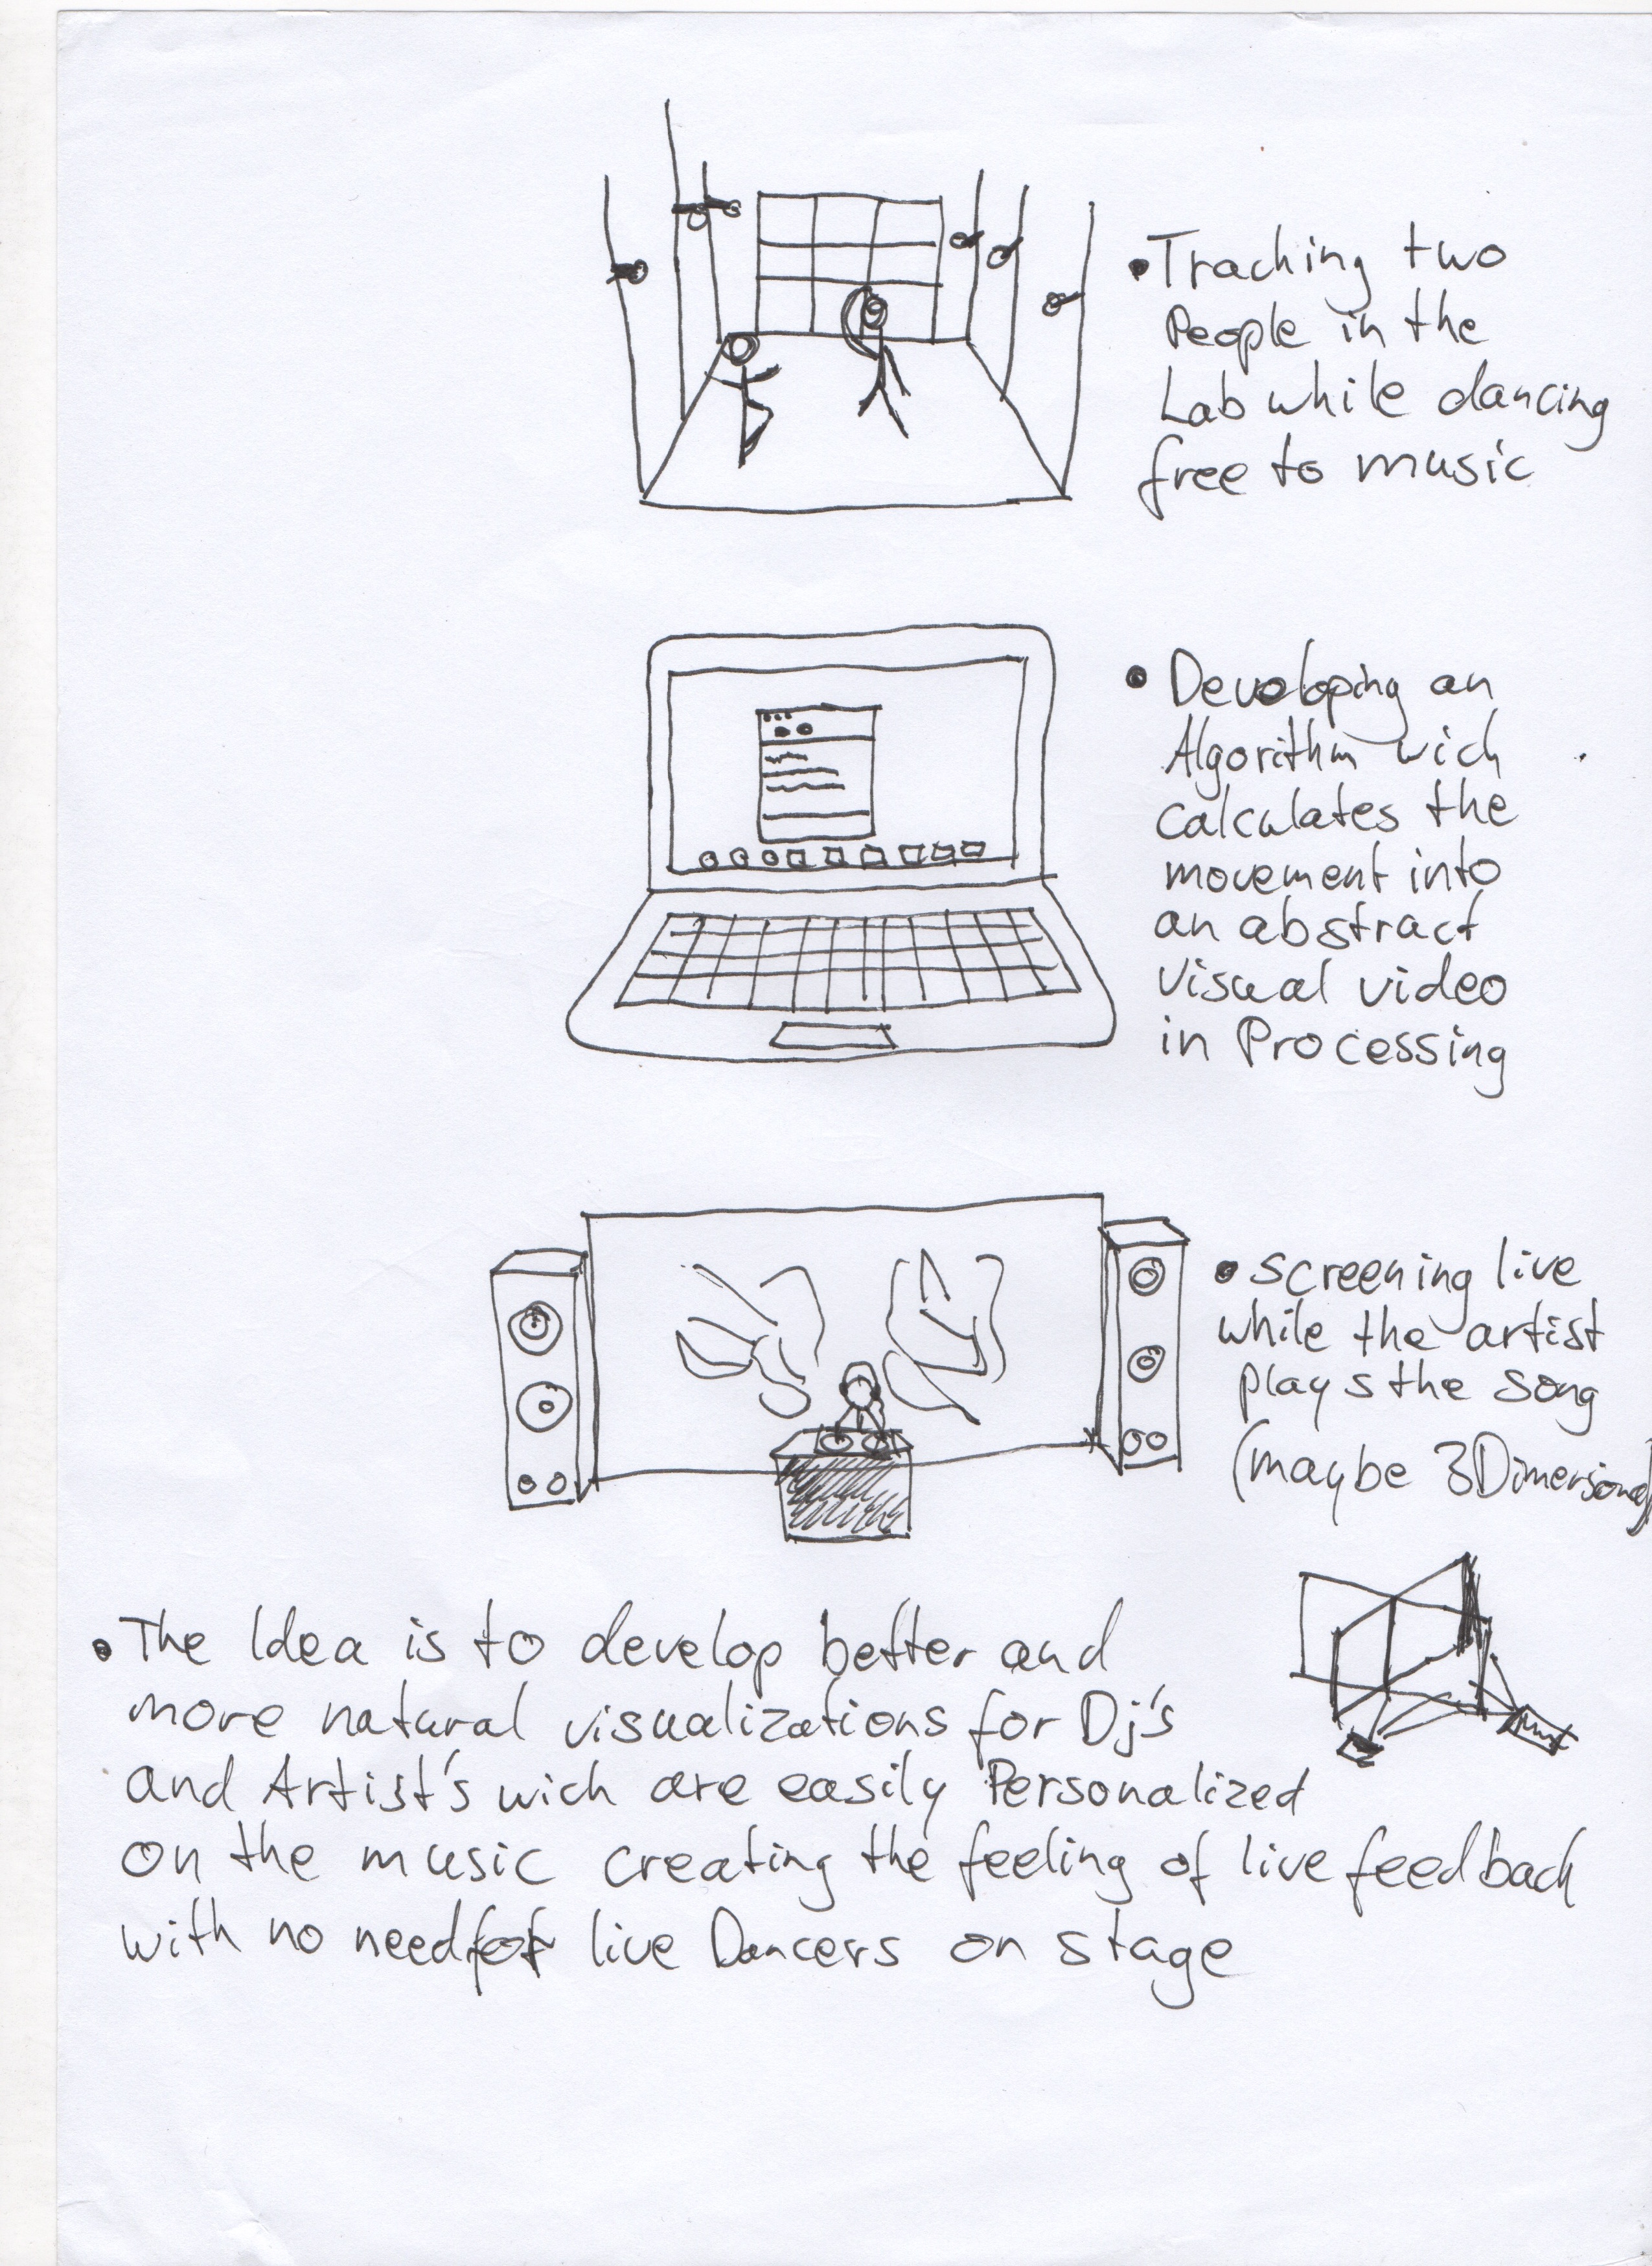 • Tracking two
People in the
Lab while dancing
free to music
• Developing an
Algorithm wich
calculates the
movement into
an abstract
visual video
in Processing
• screening live
while the artist
plays the song
(maybe 3Dimensional)
• The Idea is to develop better and
more natural visualizations for Dj's
and Artist's wich are easily Personalized
on the music creating the feeling of live feedback
with no need for live Dancers on stage